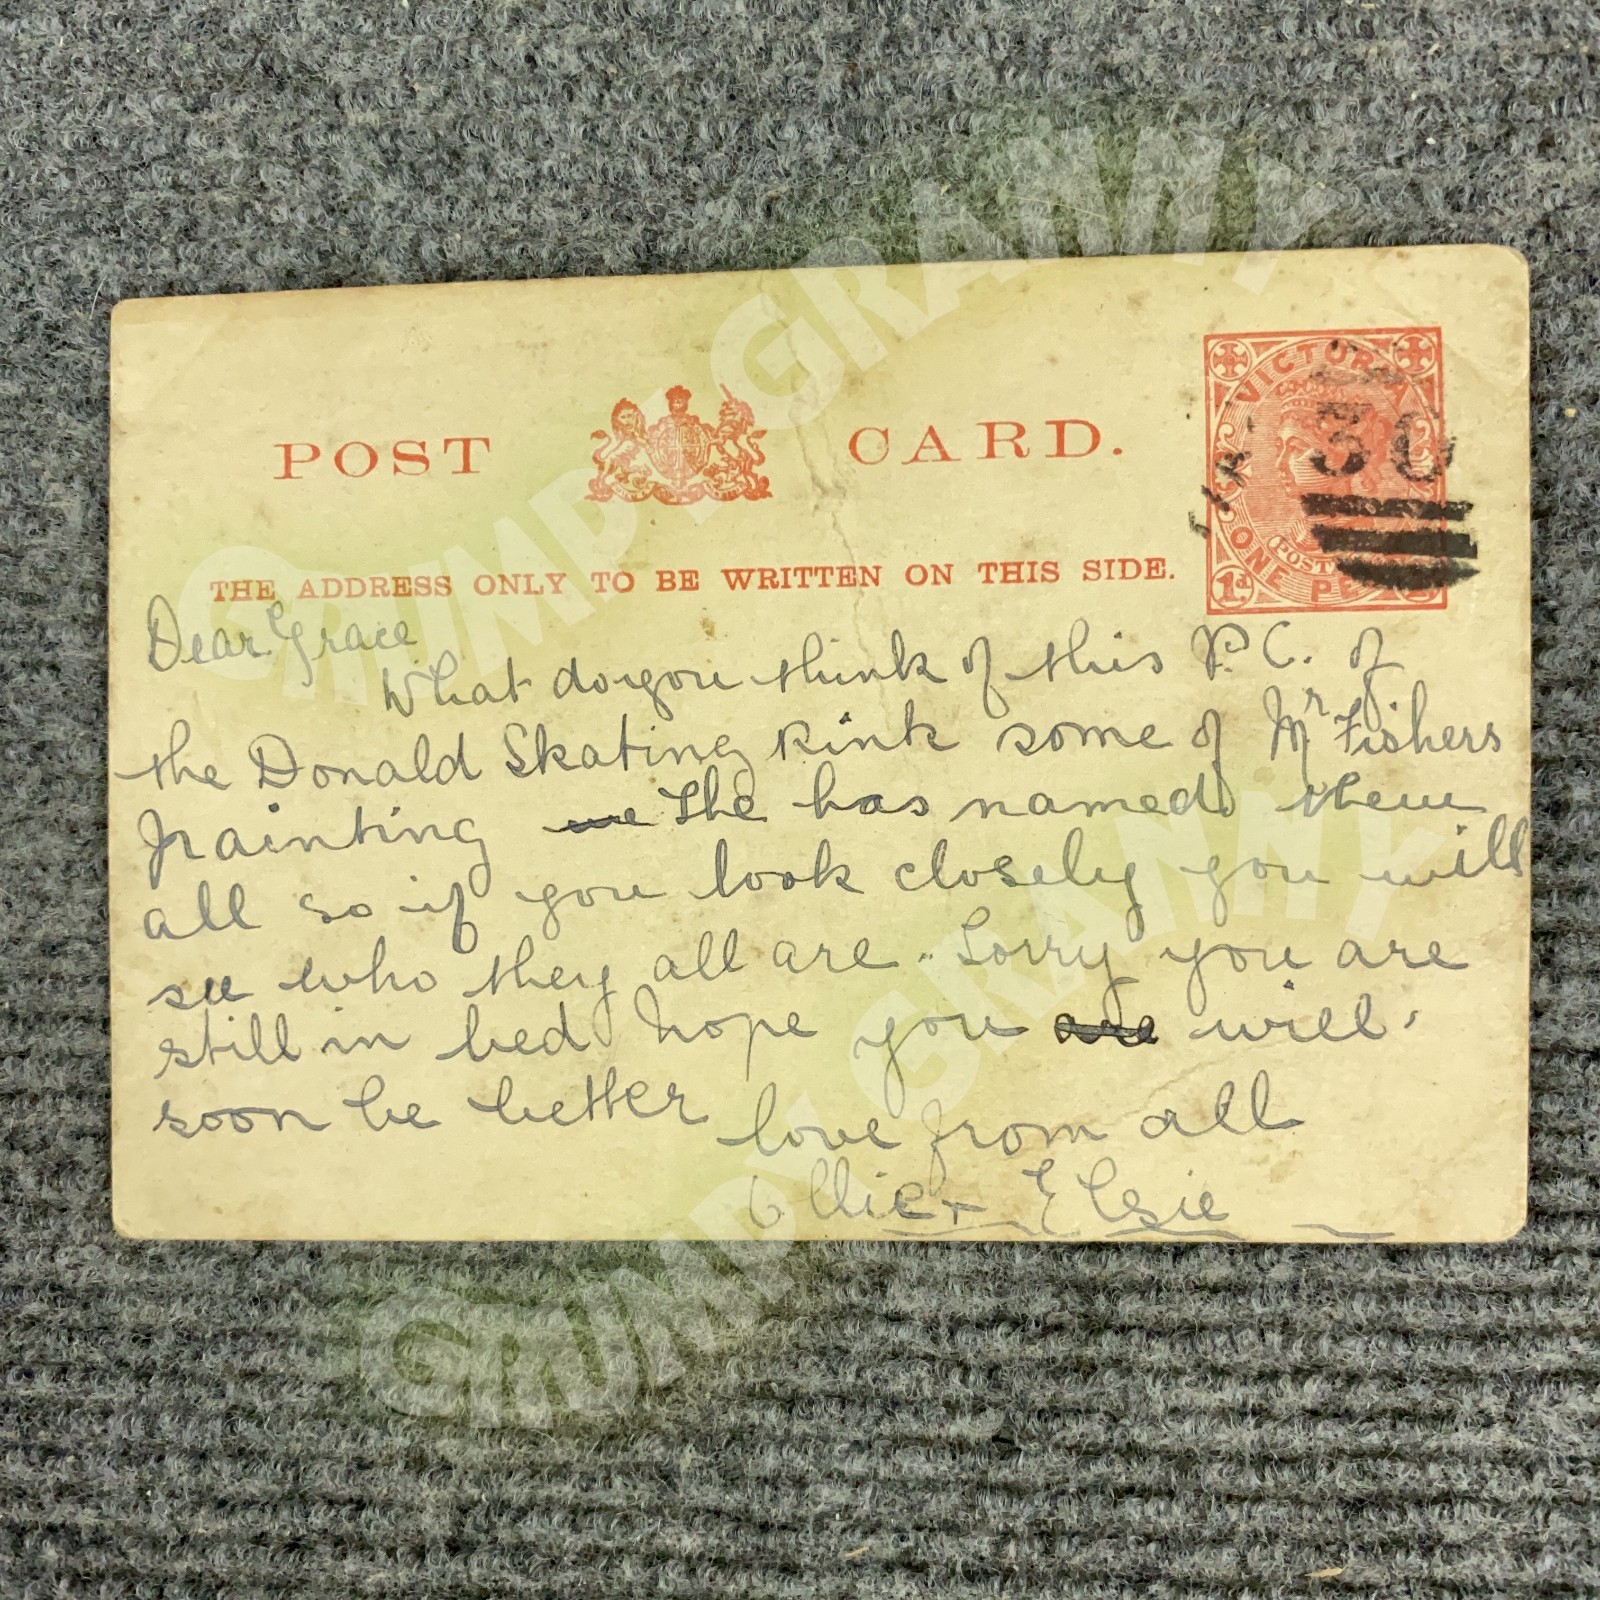 POST CARD.
VICTORIA
ONE PE
POST
1d
THE ADDRESS ONLY TO BE WRITTEN ON THIS SIDE.
Dear Grace
What do you think of this P.C. of
the Donald Skating Rink some of Mr Fishers
painting he has named them
all so if you look closely you will
see who they all are. Sorry you are
still in bed hope you are will
soon be better
love from all
Ollie + Elsie
GRUMPY GRANNY
GRUMPY GRANNY